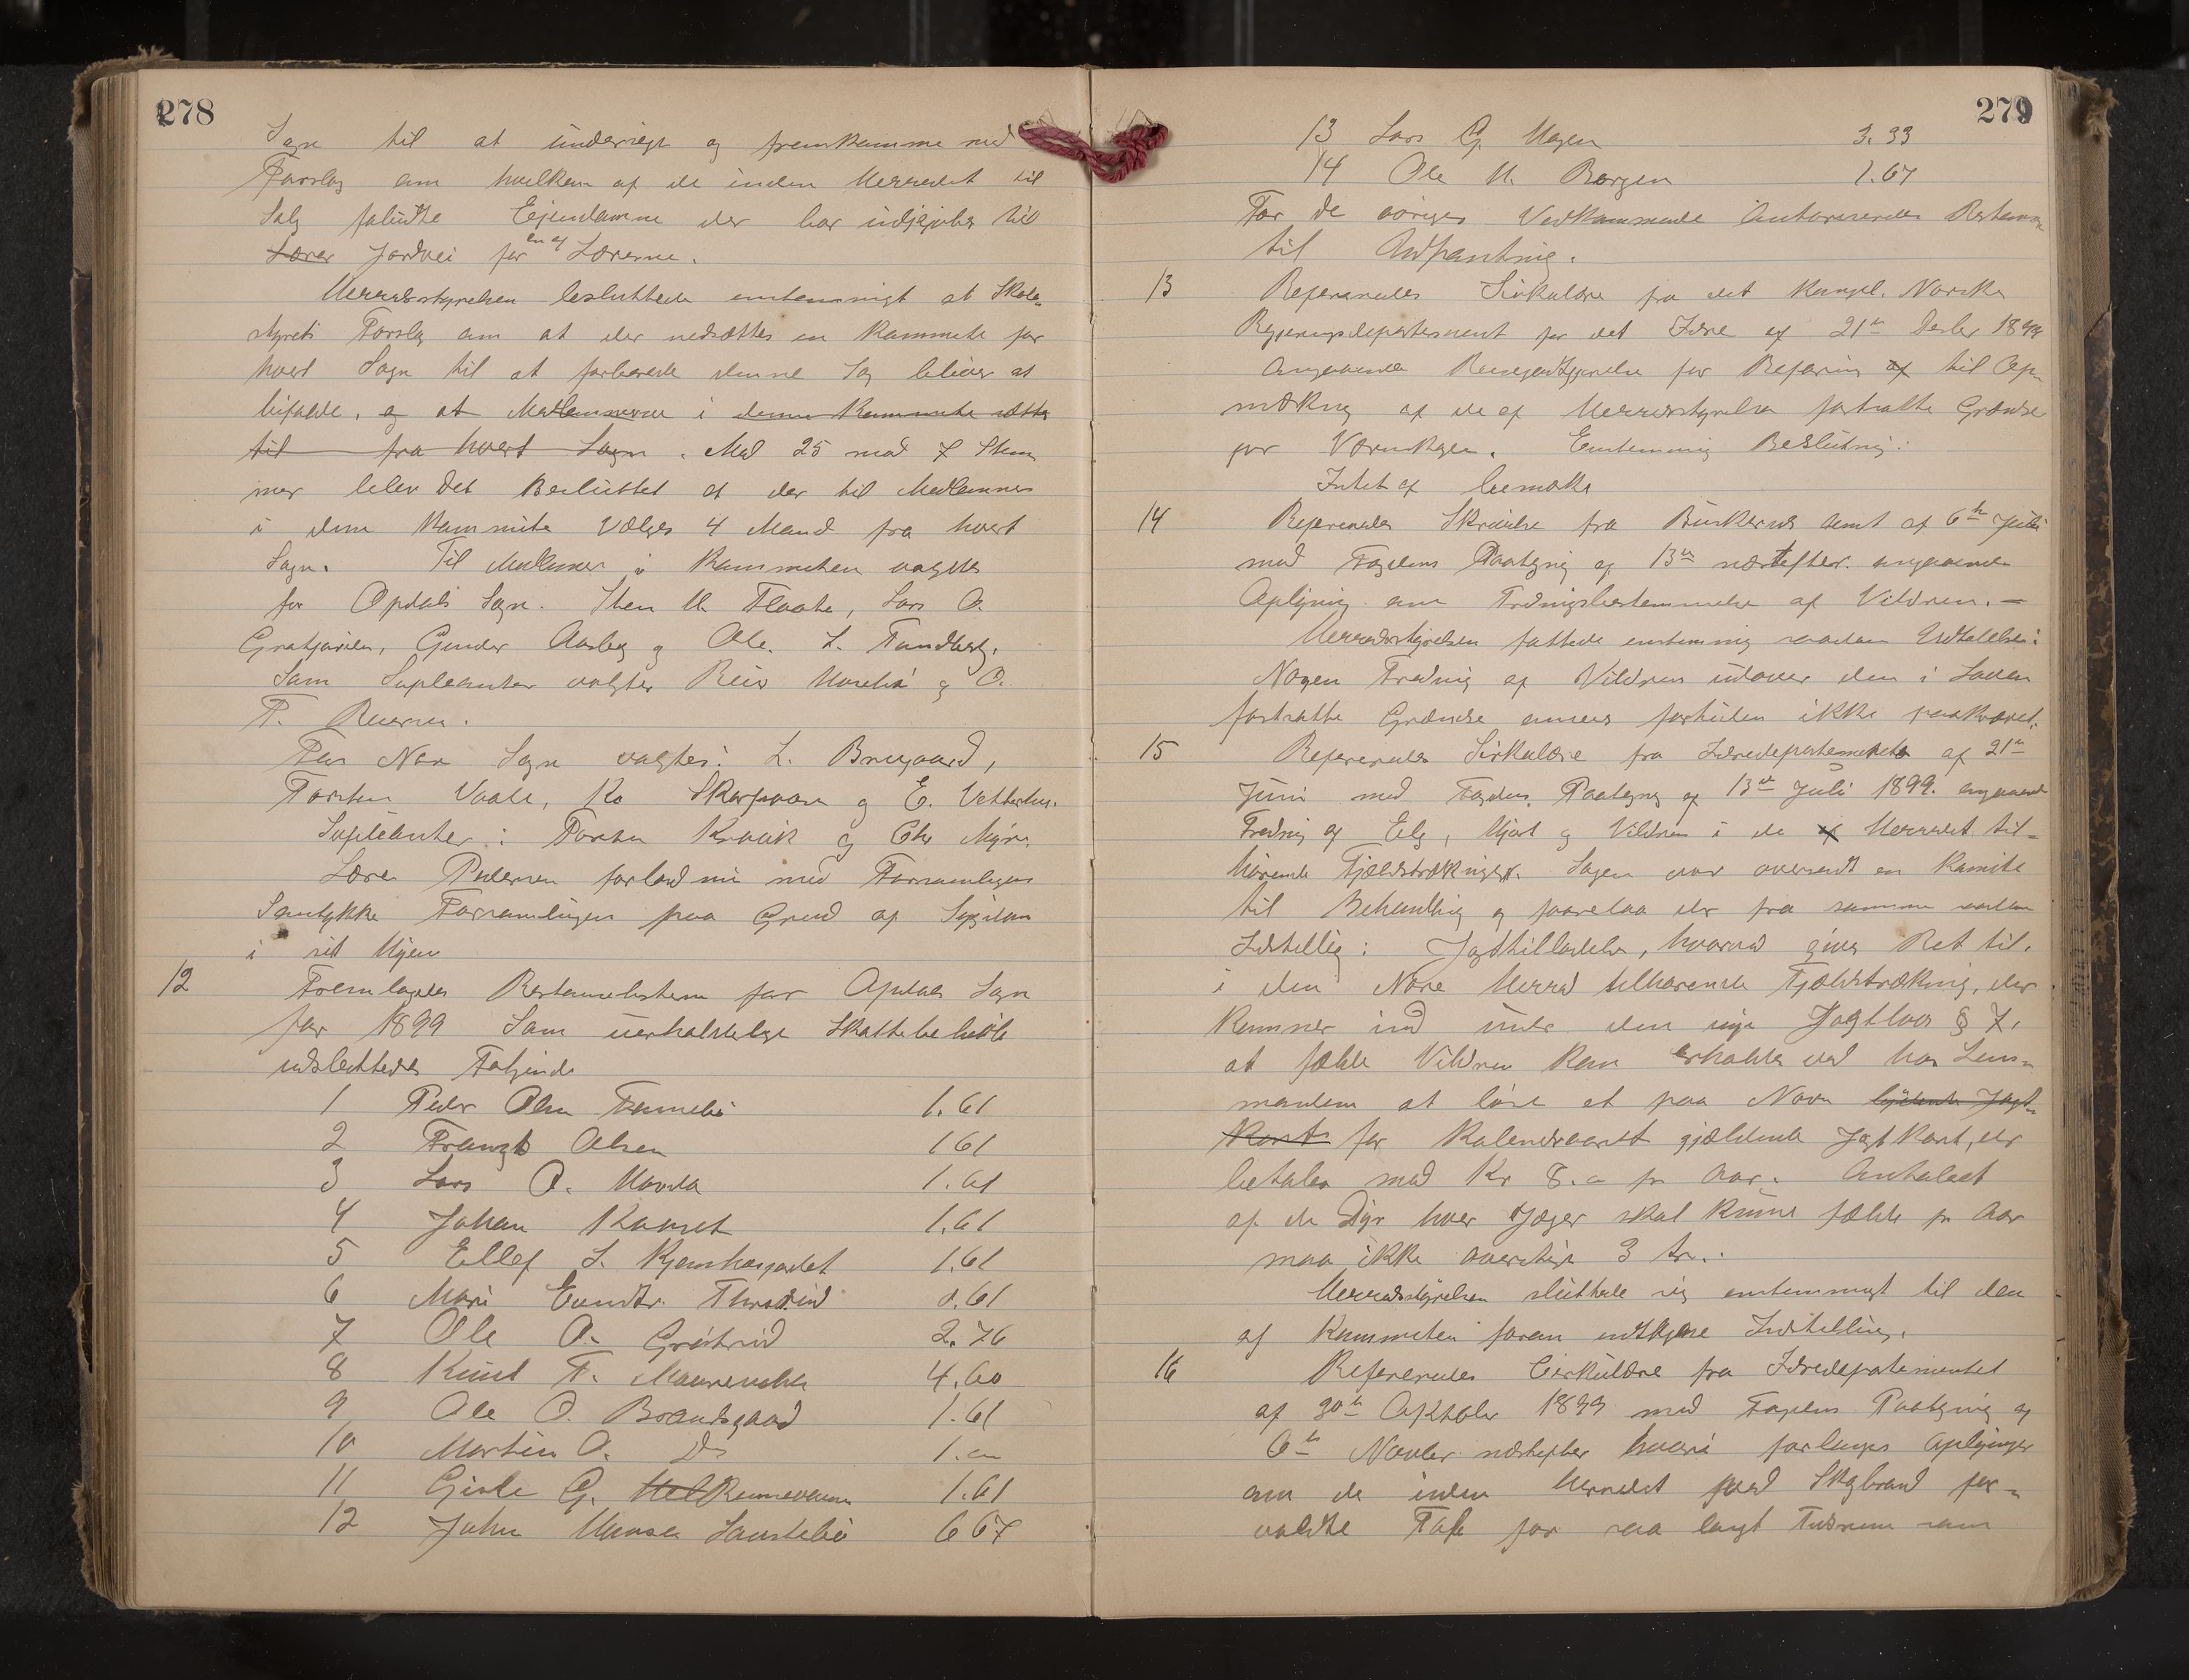 278
Sogn til at undersøge og fremkomme med
Forslag om hvilken af de inden Herredet til
Salg falbudte Ejendomme der bør indkjøbes til
Lærer Jordvei for en af Lærerne.
Herredsstyrelsen besluttede enstemmigt at Skole-
styrets Forslag om at der nedsættes en Kommite for
hvert Sogn til at forberede denne Sag bliver at
bifalde, og at Medlemmerne i denne Kommite sættes
til fra hvert Sogn. Med 25 mod 7 Stem
mer blev det Besluttet at der til Medlemmer
i denne Kommite vælges 4 Mand fra hvert
Sogn. Til Medlemmer i Kommiteen valgtes
for Opdals Sogn. Sten H. Flaate, Lars O.
Gunder Aasberg og Ole L. Tundberg.
Som Supleanter valgtes og O.
T.
For Nore Sogn valgtes: L. Brugaard,
Torsten Vaale, Ko Skarpaas og E.
Supleanter: Torsten Kravik og Chr Myra
Lærer Pedersen forlod nu med Forsamlingens
Samtykke Forsamlingen paa Grund af Sygdom
i sit Hjem
12 Fremlagdes Restancelisten for Opdals Sogn
for 1899 Som uerholdelige Skattebeløb
udslettedes Følgende
1 Peder Olsen 1.61
2 Frantz Olsen 1 61
3 Lars O. 1.61
4 Johan 1.61
5 Ellef L. 1.61
6 Mari 1.61
7 Ole O. 2.76
8 Knut T. 4.60
9 Ole O. Brandsgaard 1.61
10 Martin O. Do 1.
11 Gisle G. 1.61
12 John Hansen 6 67
279
13 Lars G. Hagen 3.33
14 Ole H. Borgen 1.67
For de øvriges Vedkommende Autoriseredes Restancen
til Udpantning.
13 Refereredes Sirkulære fra det Kongel. Norske
Regjeringsdepartement for det Indre af 21de Decbr 1899
Angaaende Reisegodtgjørelse for Befaring af til Op-
mærkning af de af Herredsstyrelsen fastsatte Grændser
for Vernskogen. Enstemmig Beslutning:
Intet at bemærke
14 Refereredes Skrivelse fra Buskeruds Amt af 6te Juli
med Fogdens Paategning af 13de næstefter. angaaende
Oplysning om Fredningsbestemmelse af Vildren. —
Herredsstyrelsen fattede enstemmig saadan Udtalelse:
Nogen Fredning af Vildren udover den i Loven
fastsatte Grændse ansees fortiden ikke paakrævet.
15 Refereredes Sirkulære fra Indredepartementet af 21de
Juni med Fogdens Paategning af 13de Juli 1899. angaaende
Fredning af Elg, Hjort og Vildren i de af Herredet til-
hørende Fjeldstrækninger. Sagen var oversendt en Komite
til Behandling og forelaa der fra samme saadan
Indstilling: Jagttilladelse, hvorved gives Ret til.
i den Nore Herred tilhørende Fjeldstrækning, der
kommer ind under den nye Jagtlov § 7.
at fælde Vildren kan erholdes ved hos Lens-
manden at løse et paa Navn lydende Jagt-
kort for Kalenderaaret gjældende Jagtkort, der
betales med Kr 8. pr Aar. Antallet
af de Dyr hver Jæger skal kunne fælde pr Aar
maa ikke overstige 3 tre.
Herredsstyrelsen sluttede sig enstemmigt til den
af Kommiteen foran indtagne Indstilling.
16 Refereredes Cirkulære fra Indredepartementet
af 30te Oktober 1899 med Fogdens Paategning af
6te Novbr næstefter hvori forlanges Oplysninger
om de inden Herredet ved Skogbrand for-
voldte Tab for saa langt Tidsrum som